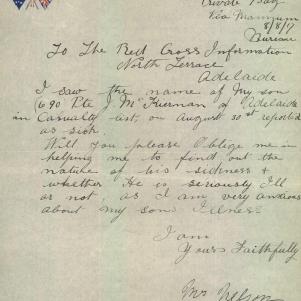 Private Bag
Via Mannum
8/8/17
Bureau
To The Red Cross Information
North Terrace
Adelaide
I saw the name of my son
690 Pte J. McKiernan of Adelaide
in Casualty list, on August 30st reported
as sick.
Will you please Oblige me in
helping me to find out the
nature of his sickness &
whether He is seriously Ill
or not, as I am very anxious
about my sons Illness
I am
Yours Faithfully
Mrs Nelson